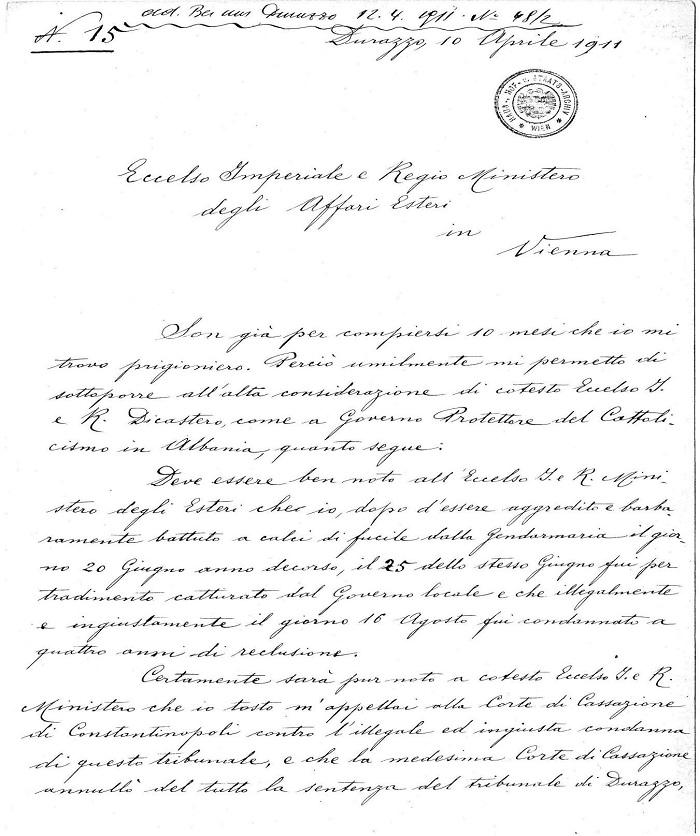 ad. Ber aus Durazzo 12.4.1911. No 48/2
N. 15
Durazzo, 10 Aprile 1911
HAUS-, HOF- u. STAATS-ARCHIV
* WIEN *
Eccelso Imperiale e Regio Ministero
degli Affari Esteri
in
Vienna
Son già per compiersi 10 mesi che io mi
trovo prigioniero. Perciò umilmente mi permetto di
sottoporre all'alta considerazione di cotesto Eccelso I.
e R. Dicastero, come a Governo Protettore del Cattoli-
cismo in Albania, quanto segue:
Deve essere ben noto all'Eccelso I. e R. Mini-
stero degli Esteri che io, dopo d'essere aggredito e barba
ramente battuto a calci di fucile dalla Gendarmaria il gior-
no 20 Giugno anno decorso, il 25 dello stesso Giugno fui per
tradimento catturato dal Governo locale e che illegalmente
e ingiustamente il giorno 16 Agosto fui condannato a
quattro anni di reclusione.
Certamente sarà pur noto a cotesto Eccelso I. e R.
Ministero che io tosto m'appellai alla Corte di Cassazione
di Constantinopoli contro l'illegale ed ingiusta condanna
di questo tribunale, e che la medesima Corte di Cassazione
annullò del tutto la sentenza del tribunale di Durazzo,